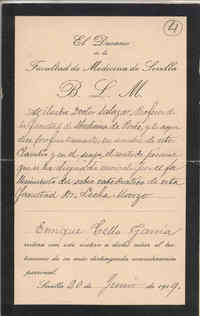 4
El Decano
de la
Facultad de Medicina de Sevilla
B. L. M.
Al ilustre Doctor Salazar, Profesor de
la facultad de Medicina de Cádiz, y le agra-
dece profundamente, en nombre de este
Claustro y en el suyo, el sentido pésame
que se ha dignado enviarle por el fa-
llecimiento del sabio catedrático de esta
facultad Dr. Lecha-Marzo.
Enrique Tello García
reitera con este motivo a dicho señor el tes-
timonio de su más distinguida consideración
personal.
Sevilla 20 de Junio de 1919.